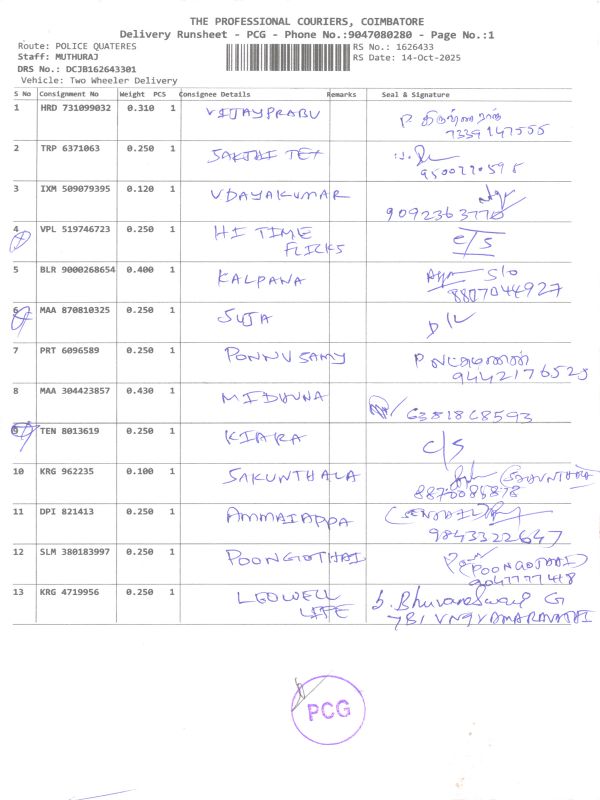 THE PROFESSIONAL COURIERS, COIMBATORE
Delivery Runsheet - PCG - Phone No.:9047080280 - Page No.:1
Route: POLICE QUATERES RS No.: 1626433
Staff: MUTHURAJ RS Date: 14-Oct-2025
DRS No.: DCJB162643301
Vehicle: Two Wheeler Delivery
S No Consignment No Weight PCS Consignee Details Remarks Seal & Signature
1 HRD 731099032 0.310 1 VIJAYPRABU P.
7339147555
2 TRP 6371063 0.250 1 SAKTHI TEX
9500770595
3 IXM 509079395 0.120 1 UDAYAKUMAR
9092363770
4 VPL 519746723 0.250 1 HI TIME C/S
FLICKS
5 BLR 9000268654 0.400 1 KALPANA S/O
8807044927
6 MAA 870810325 0.250 1 SUJA D/L
7 PRT 6096589 0.250 1 PONNUSAMY P
9442176525
8 MAA 304423857 0.430 1 MIDHUNA 6381868593
9 TEN 8013619 0.250 1 KIARA C/S
10 KRG 962235 0.100 1 SAKUNTHALA
8870085878
11 DPI 821413 0.250 1 AMMAIAPPA
9843322647
12 SLM 380183997 0.250 1 POONGOTHAI (POONGOTHAI)
9047777418
13 KRG 4719956 0.250 1 LEDWELL S. Bhuvaneswari G
LIFE
PCG